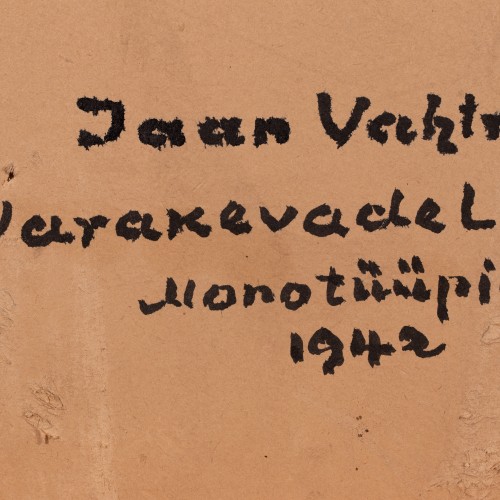 Jaan Vahtr
Varakevadel
Monotüüpi
1942